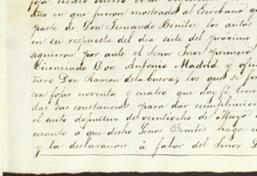 foja
año en que fueron mostrados al Escribano q
parte de Don Fernando Benite los autos
en su respuesta del dia siete del proximo
siguieron por ante el Señor Juez primero
Licenciado Don Antonio Madrid y ofici
ñero Don Ramon de la Cueva; los que se for
con fojas noventa y cuatro que doy fé, tene
das sus constancias para dar cumplimien
el auto definitivo del veintiocho de Mayo
cuanto á que dicho Señor Benites haga c
y la declaracion á fabor del Señor